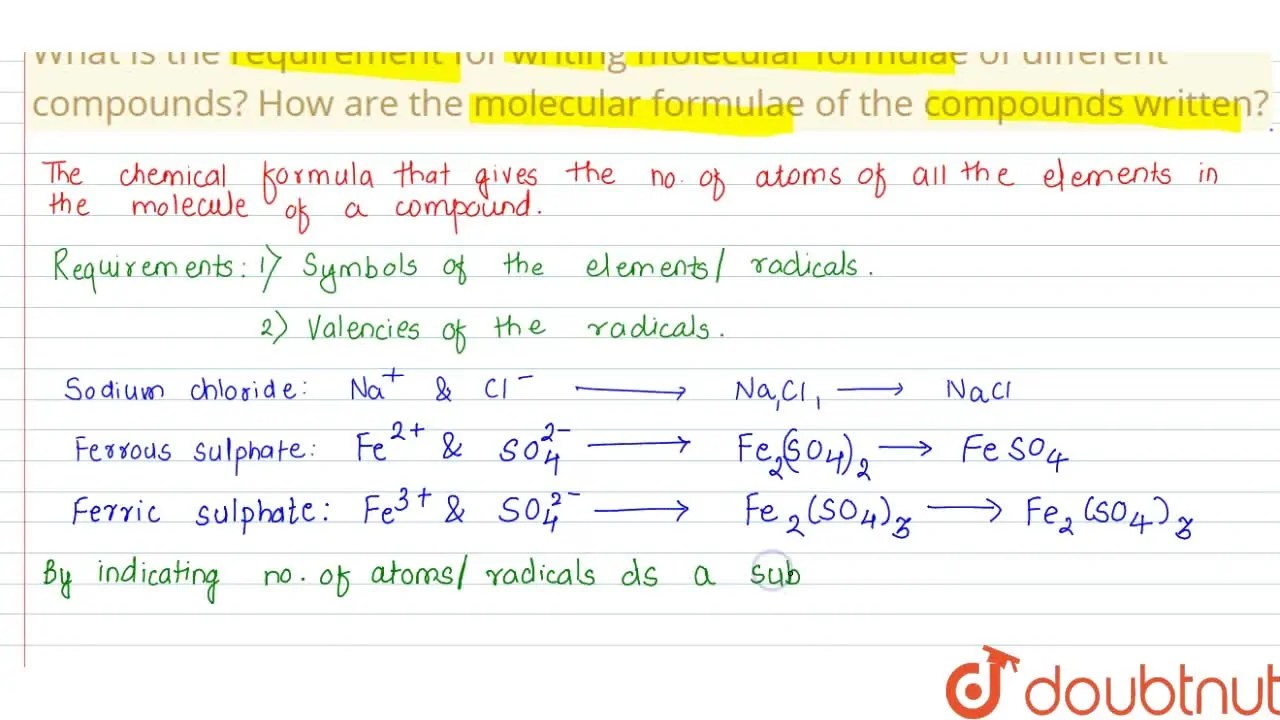 What is the requirement for writing molecular formulae of different
compounds? How are the molecular formulae of the compounds written?
The chemical formula that gives the no. of atoms of all the elements in
the molecule of a compound.
Requirements: 1) Symbols of the elements/ radicals.
2) Valencies of the radicals.
Sodium chloride: Na⁺ & Cl⁻ ⟶ Na₁Cl₁ ⟶ NaCl
Ferrous sulphate: Fe²⁺ & SO₄²⁻ ⟶ Fe₂(SO₄)₂ ⟶ FeSO₄
Ferric sulphate: Fe³⁺ & SO₄²⁻ ⟶ Fe₂(SO₄)₃ ⟶ Fe₂(SO₄)₃
By indicating no. of atoms/ radicals ds a sub
doubtnut